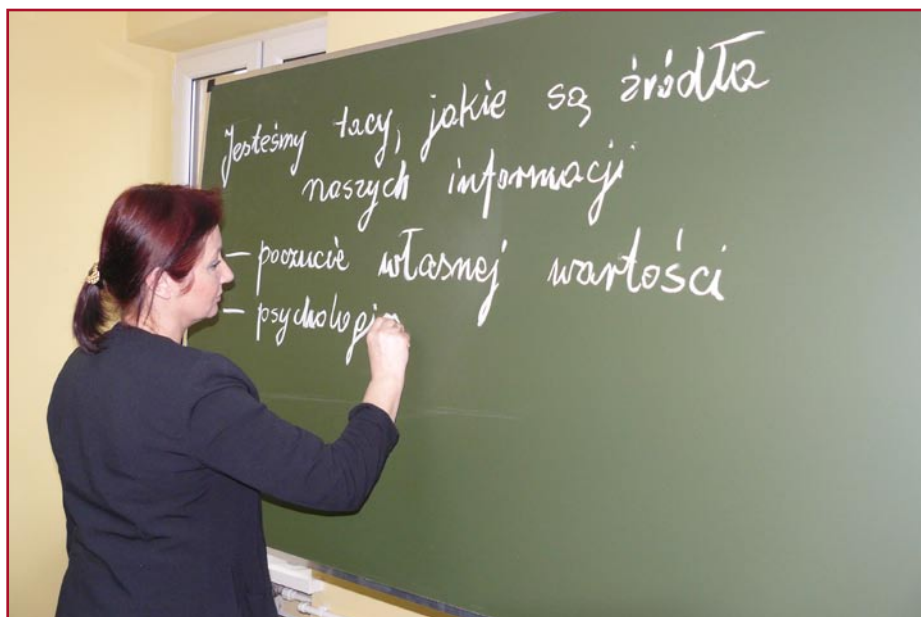 Jesteśmy tacy, jakie są źródła
naszych informacji
- poczucie własnej wartości
- psychologi